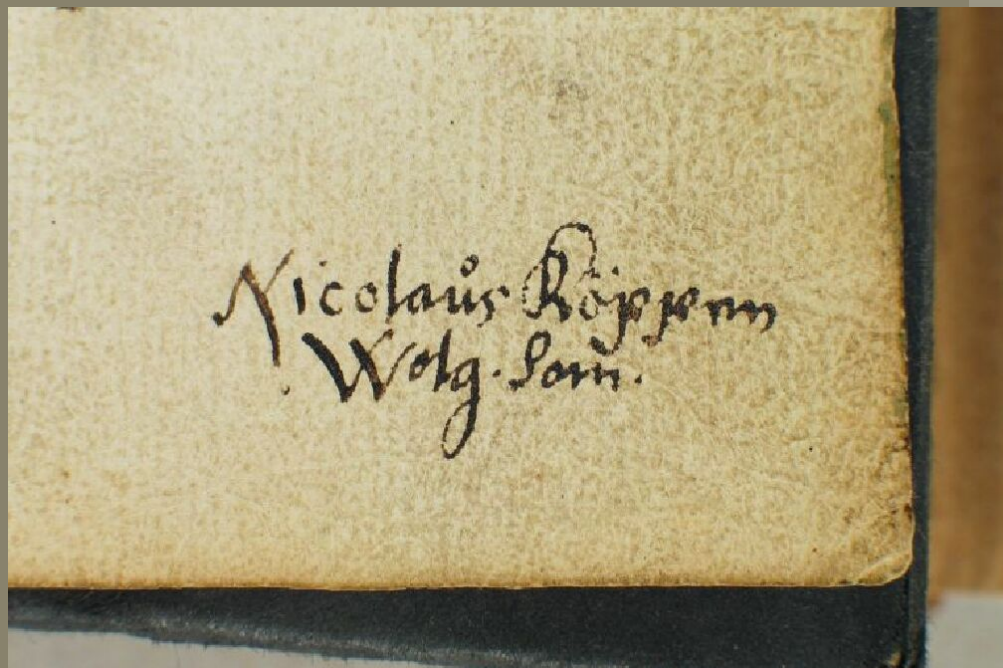 Nicolaůs Köppen
Wolg. Pom̄.